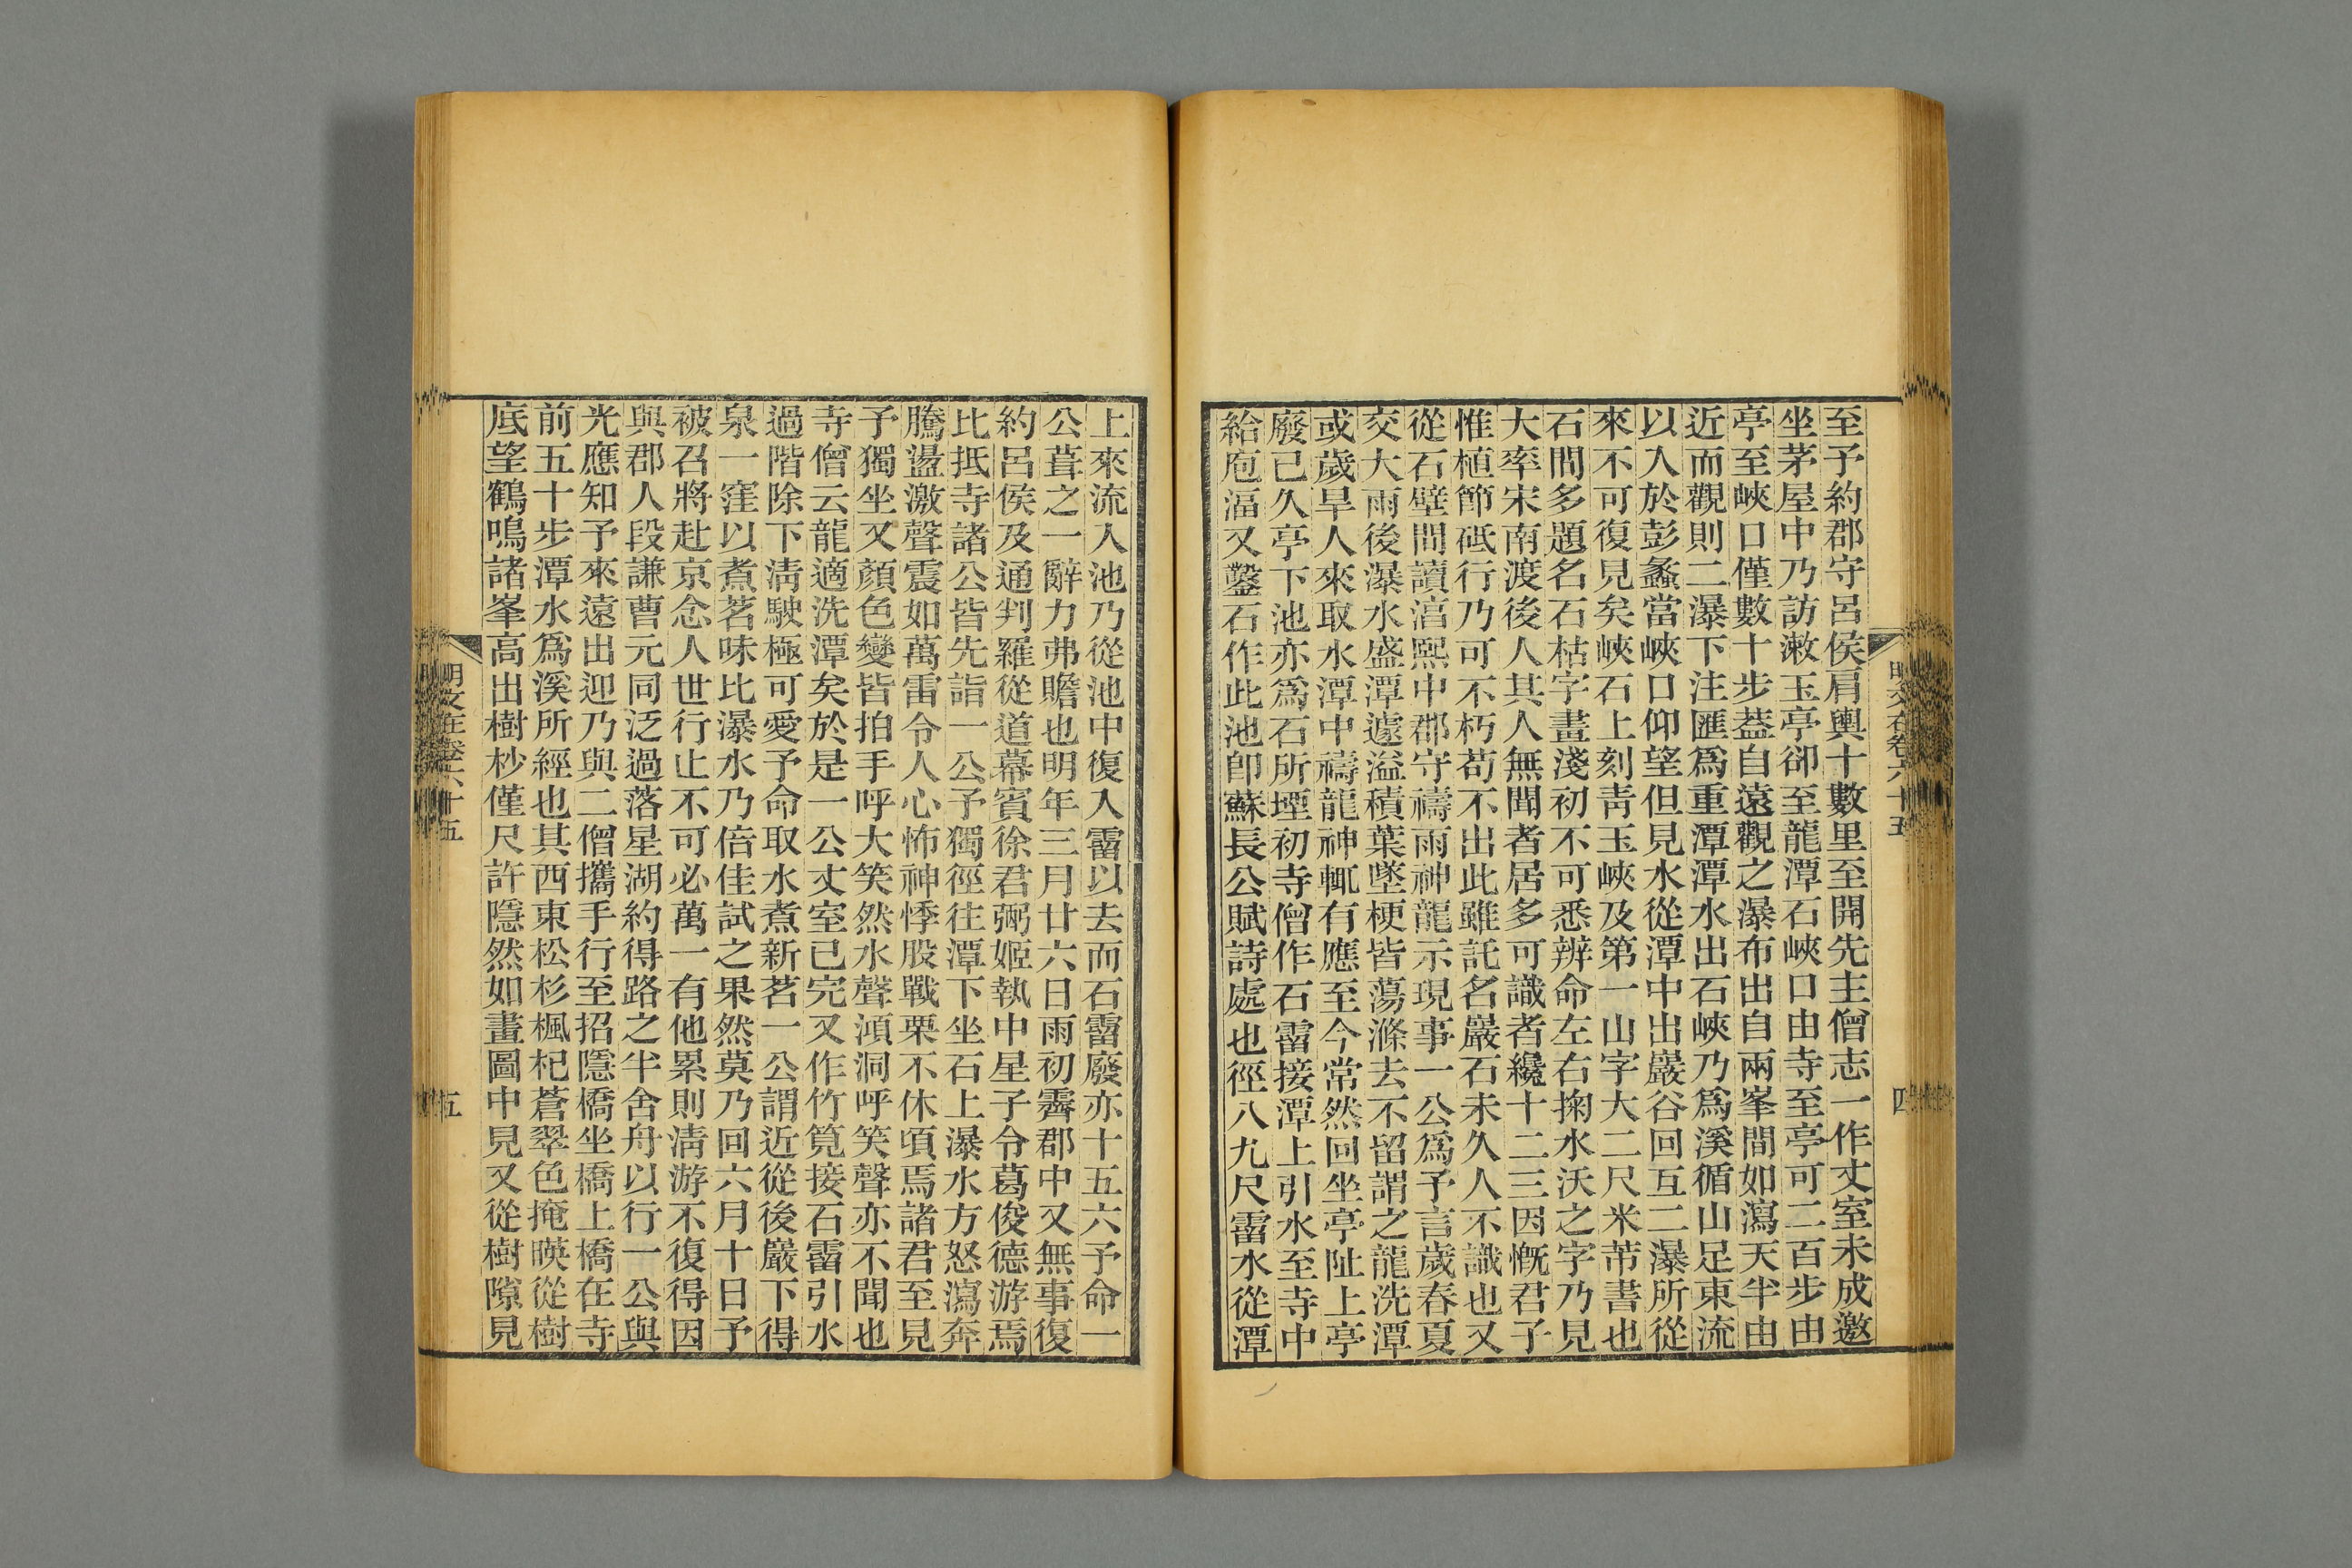 至予約郡守呂侯肩輿十數里至開先主僧志一作丈室未成邀
坐茅屋中乃訪漱玉亭卻至龍潭石峽口由寺至亭可二百步由
亭至峽口僅數十步葢自遠觀之瀑布出自兩峯間如瀉天半由
近而觀則二瀑下注匯爲重潭潭水出石峽乃爲溪循山足東流
以入於彭蠡當峽口仰望但見水從潭中出巖谷回互二瀑所從
來不可復見矣峽石上刻靑玉峽及第一山字大二尺米芾書也
石間多題名石枯字畫淺初不可悉辨命左右掬水沃之字乃見
大率宋南渡後人其人無聞者居多可識者纔十二三因慨君子
惟植節砥行乃可不朽苟不出此雖託名巖石未久人不識也又
從石壁間讀湻熙中郡守禱雨神龍示現事一公爲予言歲春夏
交大雨後瀑水盛潭遽溢積葉墜梗皆蕩滌去不留謂之龍洗潭
或歲旱人來取水潭中禱龍神輒有應至今常然回坐亭阯上亭
廢已久亭下池亦爲石所堙初寺僧作石霤接潭上引水至寺中
給庖湢又鑿石作此池卽蘇長公賦詩處也徑八九尺霤水從潭
明文在卷六十五
四
上來流入池乃從池中復入霤以去而石霤廢亦十五六予命一
公葺之一辭力弗贍也明年三月廿六日雨初霽郡中又無事復
約呂侯及通判羅從道幕賓徐君弼姬執中星子令葛俊德游焉
比抵寺諸公皆先詣一公予獨徑往潭下坐石上瀑水方怒瀉奔
騰盪激聲震如萬雷令人心怖神悸股戰栗不休頃焉諸君至見
予獨坐又顏色變皆拍手呼大笑然水聲澒洞呼笑聲亦不聞也
寺僧云龍適洗潭矣於是一公丈室已完又作竹筧接石霤引水
過階除下淸駛極可愛予命取水煮新茗一公謂近從後巖下得
泉一窪以煮茗味比瀑水乃倍佳試之果然莫乃回六月十日予
被召將赴京念人世行止不可必萬一有他累則淸游不復得因
與郡人段謙曹元同泛過落星湖約得路之半舍舟以行一公與
光應知予來遠出迎乃與二僧攜手行至招隱橋坐橋上橋在寺
前五十步潭水爲溪所經也其西東松杉楓杞蒼翠色掩暎從樹
底望鶴鳴諸峯高出樹杪僅尺許隱然如畫圖中見又從樹隙見
明文在卷六十五
五